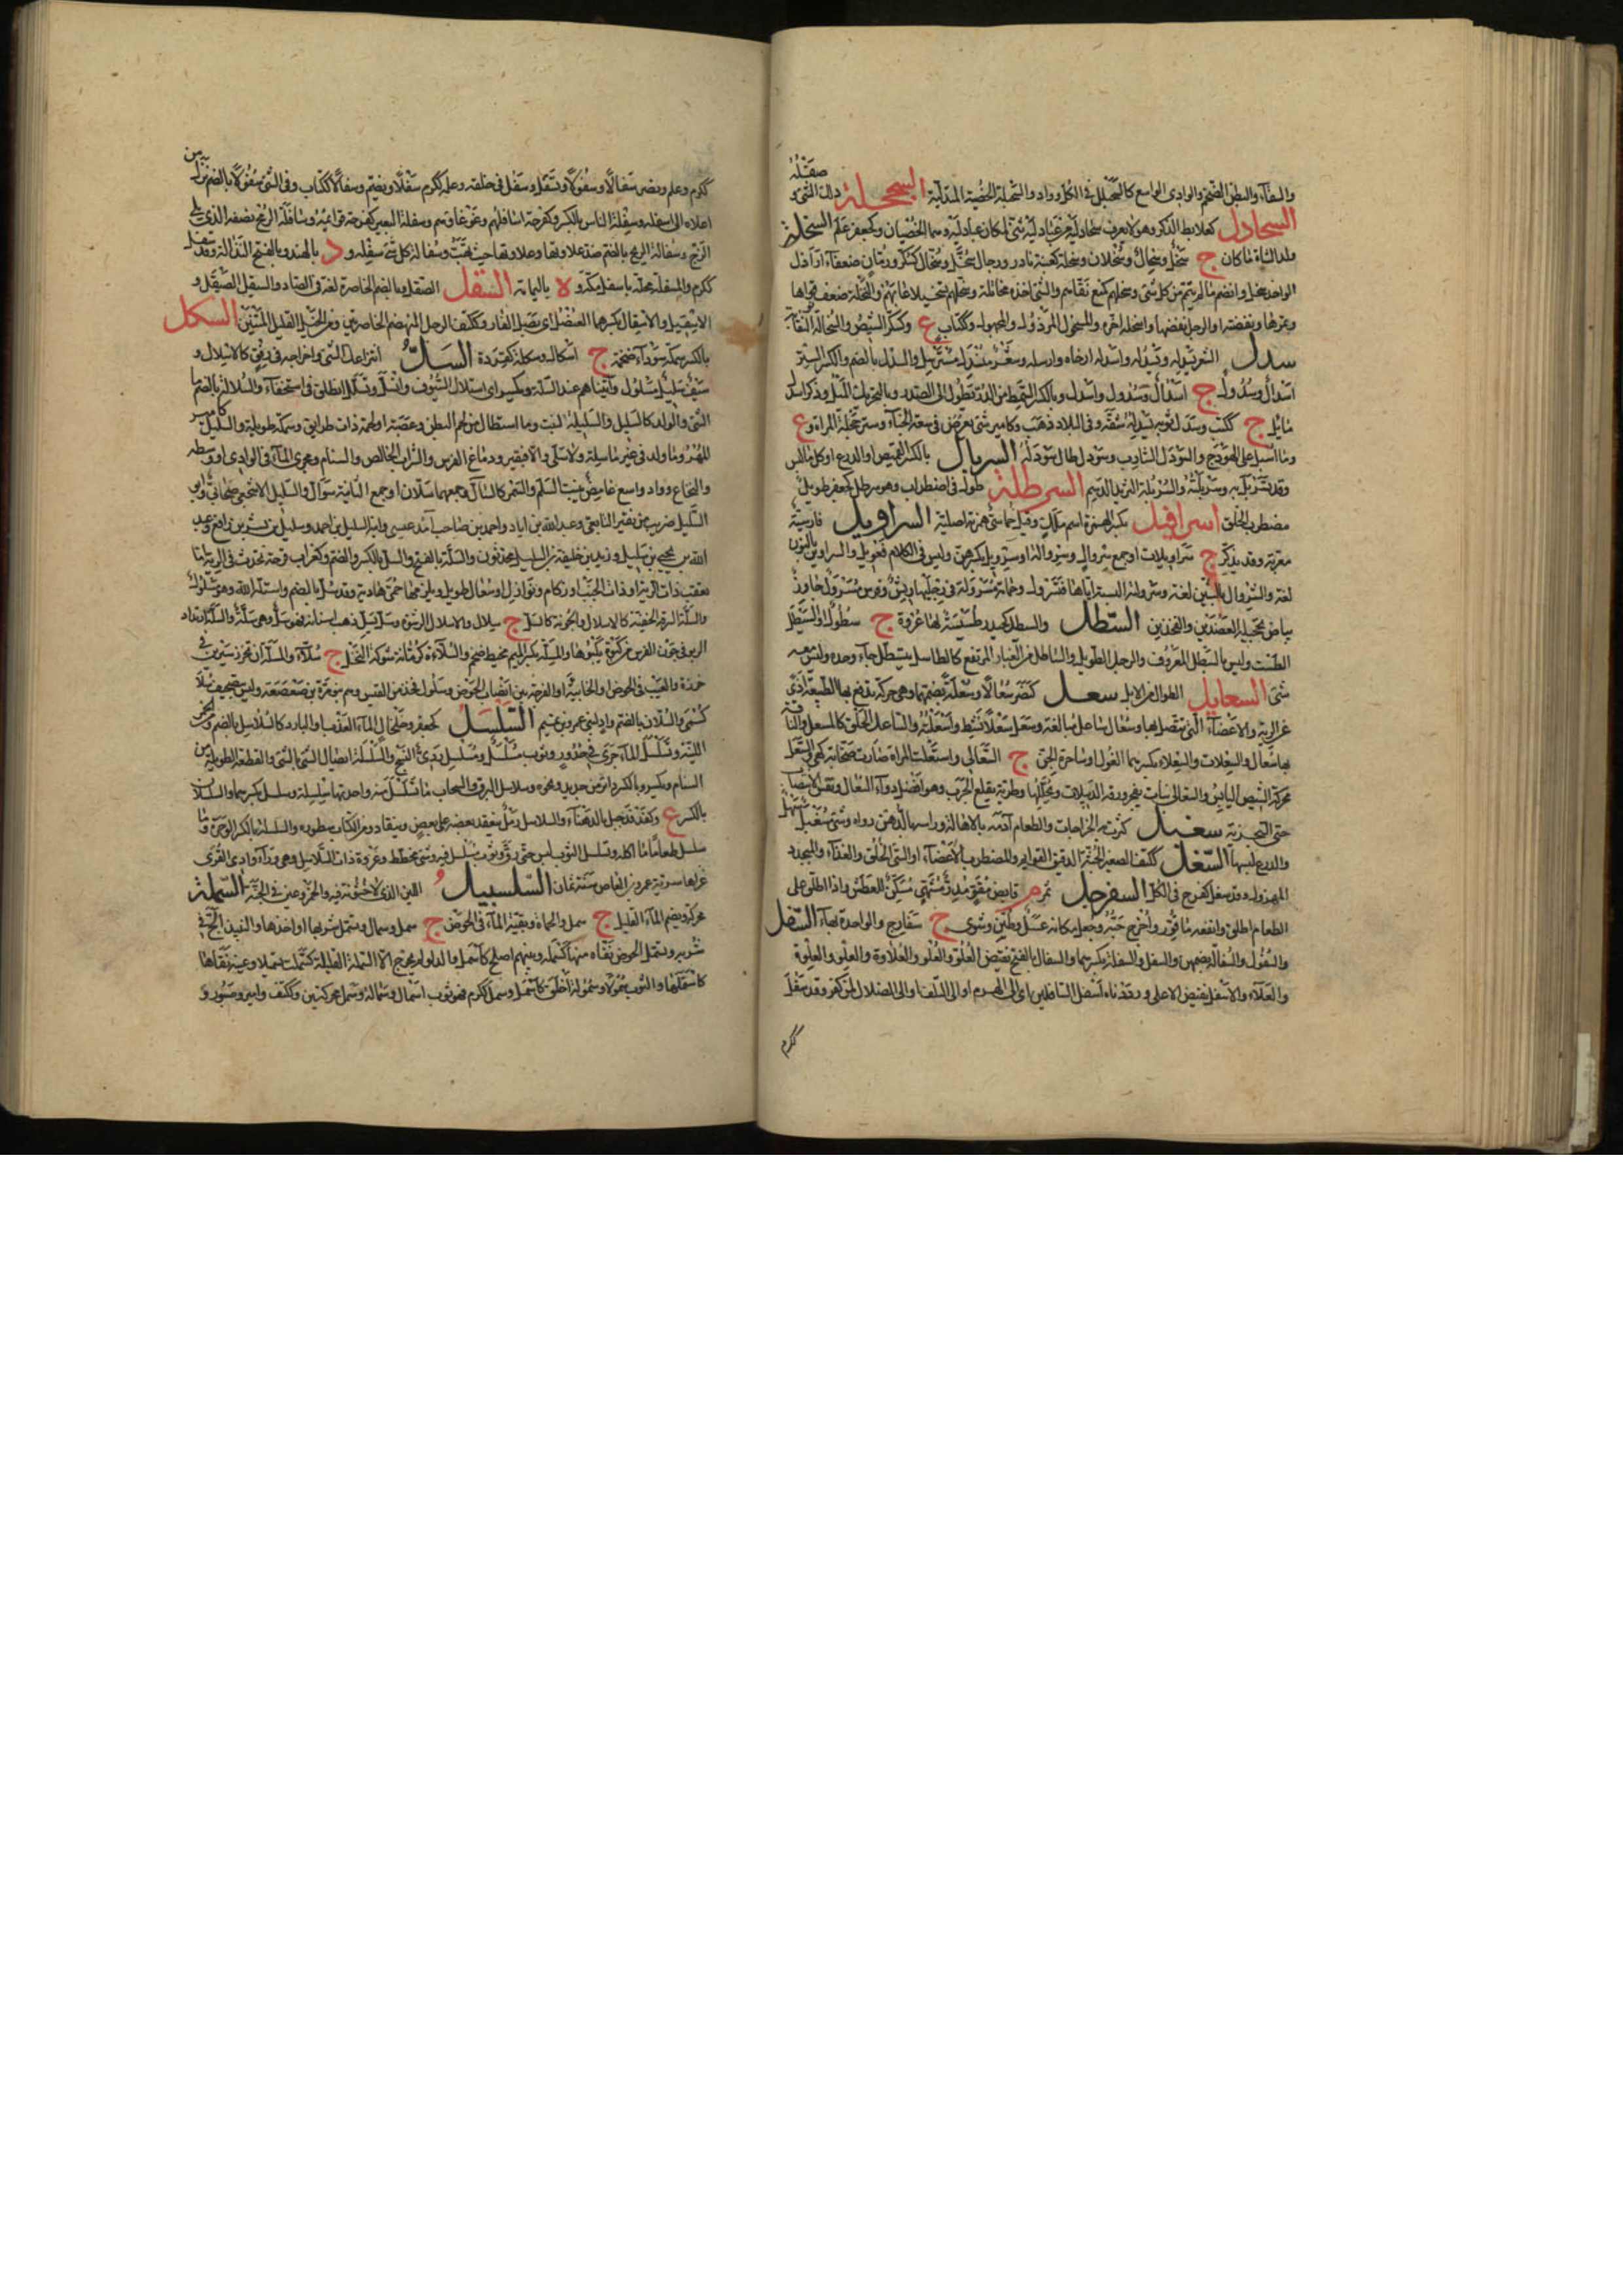 والسقاء والبطن الضخم والوادى الواسع كالسحبلل فى الكل وواد والسحبلة الخصية المتدلية السحجلة دلك الشئ وصقله
السحادل كعلابط الذكر وهو لا يعرف سحادليه من عبادليه ثنى لمكان عبادليه وهما الخصيان وكجعفر علم السخلة
ولد الشاة ما كان ج سخل وسخال وسخلان وسخلة كعنبة نادر ورجال سخل وسخال كسكر ورمان ضعفاء ارذال
الواحد سخل وانضم ما لم يتمم من كل شئ وسخلهم كمنع نفاهم والشئ اخذه مخاتلة وسخلهم تسخيلا عابهم والنخلة ضعف نواها
وتمرها ونفضته او الرجل نفضها واسخله اخره والمسخول المرذول والمجهول وككتاب ع وكسكر الشيص والسخالة النفاية
سدل الشعر يسدله ويسدله واسدله ارخاه وارسله وشعر منسدل مسترسل والسدل بالضم والكسر الستر
اسدال وسدول ج اسدال وسدول واسدل وبالكسر السمط من الدر تطول الى الصدر وبالتحريك الميل وذكر اسدل
مائل ج ككتب وسدل ثوبه يسدله شقه وفى البلاد ذهب وكامير شئ يعرض فى سقة الخباء وستر حجلة المراة وع
وما اسبل على الهودج والسودل الشارب وسودل طال سودله السربال بالكسر القميص او الدرع او كل ما لبس
وقد تسربل به وسربلته والسربلة الثريد الدسم السرطلة طول فى اضطراب وهو سرطل كجعفر طويل
مضطرب الخلق اسرافيل بكسر الهمزة اسم ملك وقيل خماسى همزته اصلية السراويل فارسية
معربة وقد يذكر ج سراويلات او جمع سروال وسروالة او سرويل بكسرهن وليس فى الكلام فعويل والسراوين بالنون
لغة والشروال بالشين لغة وسرولته البسته اياها فتسرول وحمامة مسرولة فى رجليها ريش وفرس مسرول جاوز
بياض تحجيله العضدين والفخذين السطل والسيطل كحيدر طسيسة لها عروة ج سطول او السيطل
الطست وليس بالسطل المعروف والرجل الطويل والساطل من الغبار المرتفع كالطاسل وسطل جاء وحده وليس معه
شئ السعابل الطوال من الابل سعل كنصر سعالا وسعلة بضمهما وهى حركة تدفع بها الطبيعة اذى
عن الرية والاعضاء التى تتصل بها وسعال ساعل مبالغة وسعل سعلا نشط واسعلته والساعل الحلق كالمسعل والناقة
بها سعال والسعلات والسعلاء بكسرهما الغول او ساحرة الجن ج السعالى واستسعلت المراة صارت صخابة كهى والسعل
محركة الشيص اليابس والسعالى نبات يفجر ورقه الدبيلات ويحللها وطريه يقلع الجرب وهو افضل دواء للسعال ونفس الانتصاب
حتى التبخر به سغبل كثرت به الجراحات والطعام ادمه بالاهالة وراسه بالدهن رواه وشئ سغبل سهل
والدرع لبسها السغل ككتف الصغير الجثة الدقيق القوائم والمضطرب الاعضاء او السئ الخلق والغذاء والمتخدد
المهزول وقد سغل كفرح فى الكل السفرجل ثمر م قابض مقو مدر مشه مسكن للعطش واذا اكل على
الطعام اطلق وانفعه ما قور واخرج حبه وجعل مكانه عسل وطين وشوى ج سفارج والواحدة بهاء السفل
والسفول والسفالة بضمهن والسفل والسفلة بكسرهما والسفال بالفتح نقيض العلو والعلو والعلاوة والعلو والعلوة
والعلاء والاسفل نقيض الاعلى ورددناه اسفل السافلين اى الى الهرم او الى التلف او الى الضلال لمن كفر وقد سفل
ككرم
ككرم وعلم ونصر سفالا وسفولا وتسفل وسفل فى خلقه وعلمه ككرم سفلا ويضم وسفالا ككتاب وفى الشئ سفولا بالضم نزل من
اعلاه الى اسفله وسفلة الناس بالكسر وكفرحة اسافلهم وغوغاؤهم وسفلة البعير كفرحة قوائمه وسافلة الرمح نصفه الذى يلى
الزج وسفالة الريح بالضم ضد علاوتها وعلاوتها حيث تهب وسفالة كل شئ سفله و د بالهند وبالفتح النذالة وقد سفل
ككرم والمسفلة محلة باسفل مكة و ة باليمامة السقل الصقل وبالضم الخاصرة لغة فى الصاد والسيقل الصيقل و
الاسقيل والاسقال بكسرهما العنصل اى بصل الفار وككتف الرجل المنهضم الخاصرتين ومن الخيل القليل المتنين السكل
بالكسر سمكة سوداء ضخمة ج اسكال وسكلة كقردة السل انتزاعك الشئ واخراجه فى رفق كالاستلال و
سيف سليل مسلول واتيناهم عند السلة ويكسر اى استلال السيوف وانسل وتسلل انطلق فى استخفاء والسلالة بالضم ما
انسل من الشئ والولد كالسليل والسليلة البنت وما استطال من لحم المتن وعصبة او لحمة ذات طرائق وسمكة طويلة والسليل كامير
المهر وما ولد فى غير ماسكة ولا سلى والا فبقير ودماغ الفرس والشراب الخالص والسنام ومجرى الماء فى الوادى او وسطه
والنخاع وواد واسع غامض ينبت السلم والسمر كالسال وجمعهما سلان او جمع الثانية سوال والسليل الاشجعى صحابى وابو
السليل ضريب بن نقير التابعى وعبد الله بن اياد واحمد بن صاحب آمد عيسى وابنه السليل بن احمد وسليل بن بشر بن رافع وعبد
الله بن يحيى بن سليل وزيد بن خليفة بن السليل محدثون والسلة بالفتح والسل بالكسر والضم وكغراب قرحة تحدث فى الرية اما
تعقب ذات الرية او ذات الجنب او زكام ونوازل او سعال طويل ويلزمها حمى هادية وقد سل بالضم واسله الله وهو مسلول
والسلة السرقة الخفية كالاسلال والجونة كالسل ج سلال والاسلال الرشوة وسل يسل ذهب اسنانه فهو سل وهى سلة والسلة ارتداد
الربو فى جوف الفرس من كبوة يكبوها والمسلة بكسر الميم مخيط ضخم والسلاءة كرمانة شوكة النخل ج سلاء والسلة ان تخرز سيرين فى
خرزة والعيب فى الحوض او الخابية او الفرجة بين انصاب الحوض وسلول فخذ من قيس وهم بنو مرة بن صعصعة وليس بتصحيف سلا
كشمس والسلان بالضم واد لبنى عمرو بن تميم السلسل كجعفر وخلخال الماء العذب او البارد كالسلاسل بالضم ومن الخمر
اللينة وتسلسل الماء جرى فى حدور وثوب مسلسل ومسلسل ردئ النسج والسلسلة اتصال الشئ بالشئ والقطعة الطويلة من
السنام ويكسر وبالكسر دائر من حديد ونحوه وسلاسل البرق والسحاب ما تسلسل منه واحدتها سلسلة وسلسل بكسرهما والسلسلان
بالكسر ع وكفدفد جبل بالدهناء والسلاسل رمل ينعقد بعضه على بعض وينقاد ومن الكتاب سطوره والسلسلة بالكسر الوحرة وما
سلسل طعاما ما اكله وتسلسل الثوب لبس حتى رق وثوب مسلسل فيه وشى مخطط وغزوة ذات السلاسل وهى وراء وادى القرى
غزاها سرية عمرو بن العاص سنة ثمان السلسبيل اللين الذى لا خشونة فيه والخمر وعين فى الجنة السملة
محركة ويضم الماء القليل ج سمل والحماة وبقية الماء فى الحوض ج سمل وسمال وسمل شربها او اخذها والنبيذ الح فى
شربه وسمل الحوض نقاه منها كسمله وبينهم اصلح كاسمل والدلو لم تخرج الا السملة القليلة كسملت سملا وعينه فقاها
كاستملها والثوب سمولا وسمولة اخلق كاسمل وسمل ككرم فهو ثوب اسمال وسمالة وسمل محركتين وككتف وامير وصبور و